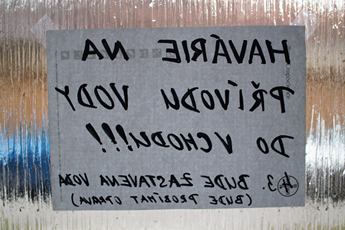 HAVÁRIE NA
PŘÍVODU VODY
DO VCHODU!!!
4.3. BUDE ZASTAVENA VODA
(BUDE PROBÍHAT OPRAVA)